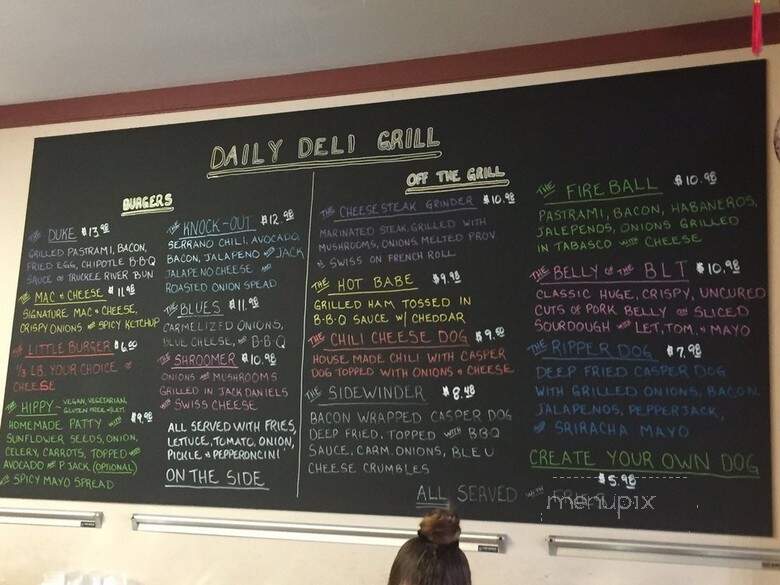 DAILY DELI GRILL
BURGERS
THE DUKE $13.98
GRILLED PASTRAMI, BACON,
FRIED EGG, CHIPOTLE B-B-Q
SAUCE ON TRUCKEE RIVER BUN
THE MAC & CHEESE $11.98
SIGNATURE MAC & CHEESE,
CRISPY ONIONS AND SPICY KETCHUP
THE LITTLE BURGER $6.00
1/3 LB. YOUR CHOICE OF
CHEESE
THE HIPPY - VEGAN, VEGETARIAN,
GLUTEN FREE
$9.98
HOMEMADE PATTY WITH
SUNFLOWER SEEDS, ONION,
CELERY, CARROTS, TOPPED WITH
AVOCADO AND P JACK (OPTIONAL)
AND SPICY MAYO SPREAD
THE KNOCK-OUT $12.98
SERRANO CHILI, AVOCADO,
BACON, JALAPENO AND JACK
JALAPENO CHEESE AND
ROASTED ONION SPEAD
THE BLUES $11.98
CARMELIZED ONIONS,
BLUE CHEESE, AND B-B-Q
THE SHROOMER $10.98
ONIONS AND MUSHROOMS
GRILLED IN JACK DANIELS
AND SWISS CHEESE
ALL SERVED WITH FRIES,
LETTUCE, TOMATO, ONION,
PICKLE & PEPPERONCINI
ON THE SIDE
OFF THE GRILL
THE CHEESESTEAK GRINDER $10.98
MARINATED STEAK GRILLED WITH
MUSHROOMS, ONIONS, MELTED PROV
& SWISS ON FRENCH ROLL
THE HOT BABE $9.98
GRILLED HAM TOSSED IN
B-B-Q SAUCE W/ CHEDDAR
THE CHILI CHEESE DOG $9.98
HOUSE MADE CHILI WITH CASPER
DOG TOPPED WITH ONIONS & CHEESE
THE SIDEWINDER $8.48
BACON WRAPPED CASPER DOG
DEEP FRIED, TOPPED WITH BBQ
SAUCE, CARM. ONIONS, BLEU
CHEESE CRUMBLES
THE FIRE BALL $10.98
PASTRAMI, BACON, HABANEROS,
JALEPENOS, ONIONS GRILLED
IN TABASCO WITH CHEESE
THE BELLY OF THE BLT $10.98
CLASSIC HUGE, CRISPY, UNCURED
CUTS OF PORK BELLY ON SLICED
SOURDOUGH WITH LET, TOM, & MAYO
THE RIPPER DOG $7.98
DEEP FRIED CASPER DOG
WITH GRILLED ONIONS, BACON
JALAPENOS, PEPPERJACK,
AND SRIRACHA MAYO
CREATE YOUR OWN DOG
$5.98
ALL SERVED WITH FRIES
menupix